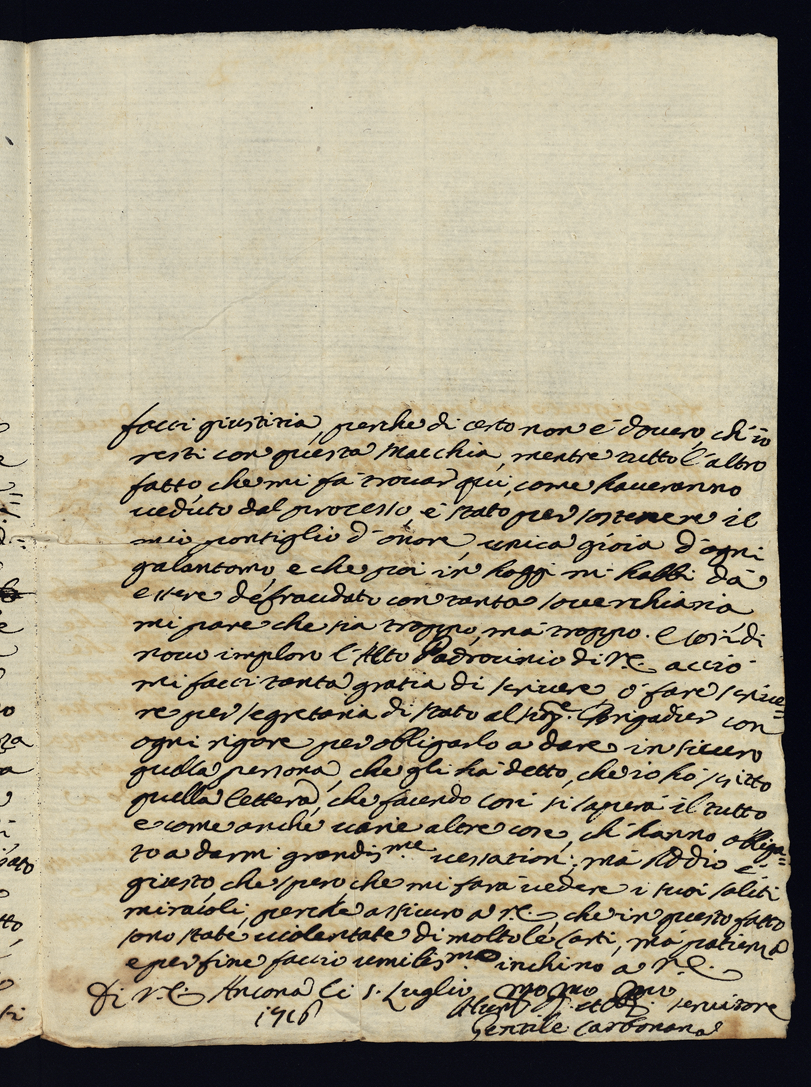 facci giustitia, perche di certo non è dovero, ch'io
resti con questa Macchia, mentre tutto l'altro
fatto che mi fà trovar quì, come haveranno
veduto dal processo è stato per sostenere il
mio pontiglio d'onore unica gioia d'ogni
galantomo e che poi in hoggi mi habbi dà
essere defraudato con tanta soverchiaria
mi pare che sia troppo, mà troppo. E così di
novo imploro l'Alto Padrocinio di V.E. acciò
mi facci tanta gratia di scrivere o fare scrive=
re per segretaria di stato al Sigre. Brigadier con
ogni rigore per obligarlo a dare in sicuro
quella persona, che gli hà detto, che io ho scritto
quella lettera, che facendo così si saperà il tutto
e come anche varie altre cose, ch'hanno obliga=
to a darmi grandisme vessationi; mà Iddio è
giusto che spero che mi farà vedere i suoi soliti
miraioli, perche assicuro a V.E. che in questo fatto
sono state violentate di molto le carti, mà patienza
e per fine faccio umilismo inchino à V.E.
Di V.E. Ancona li 5. Luglio
1716
servitore
Gentile Carbonana